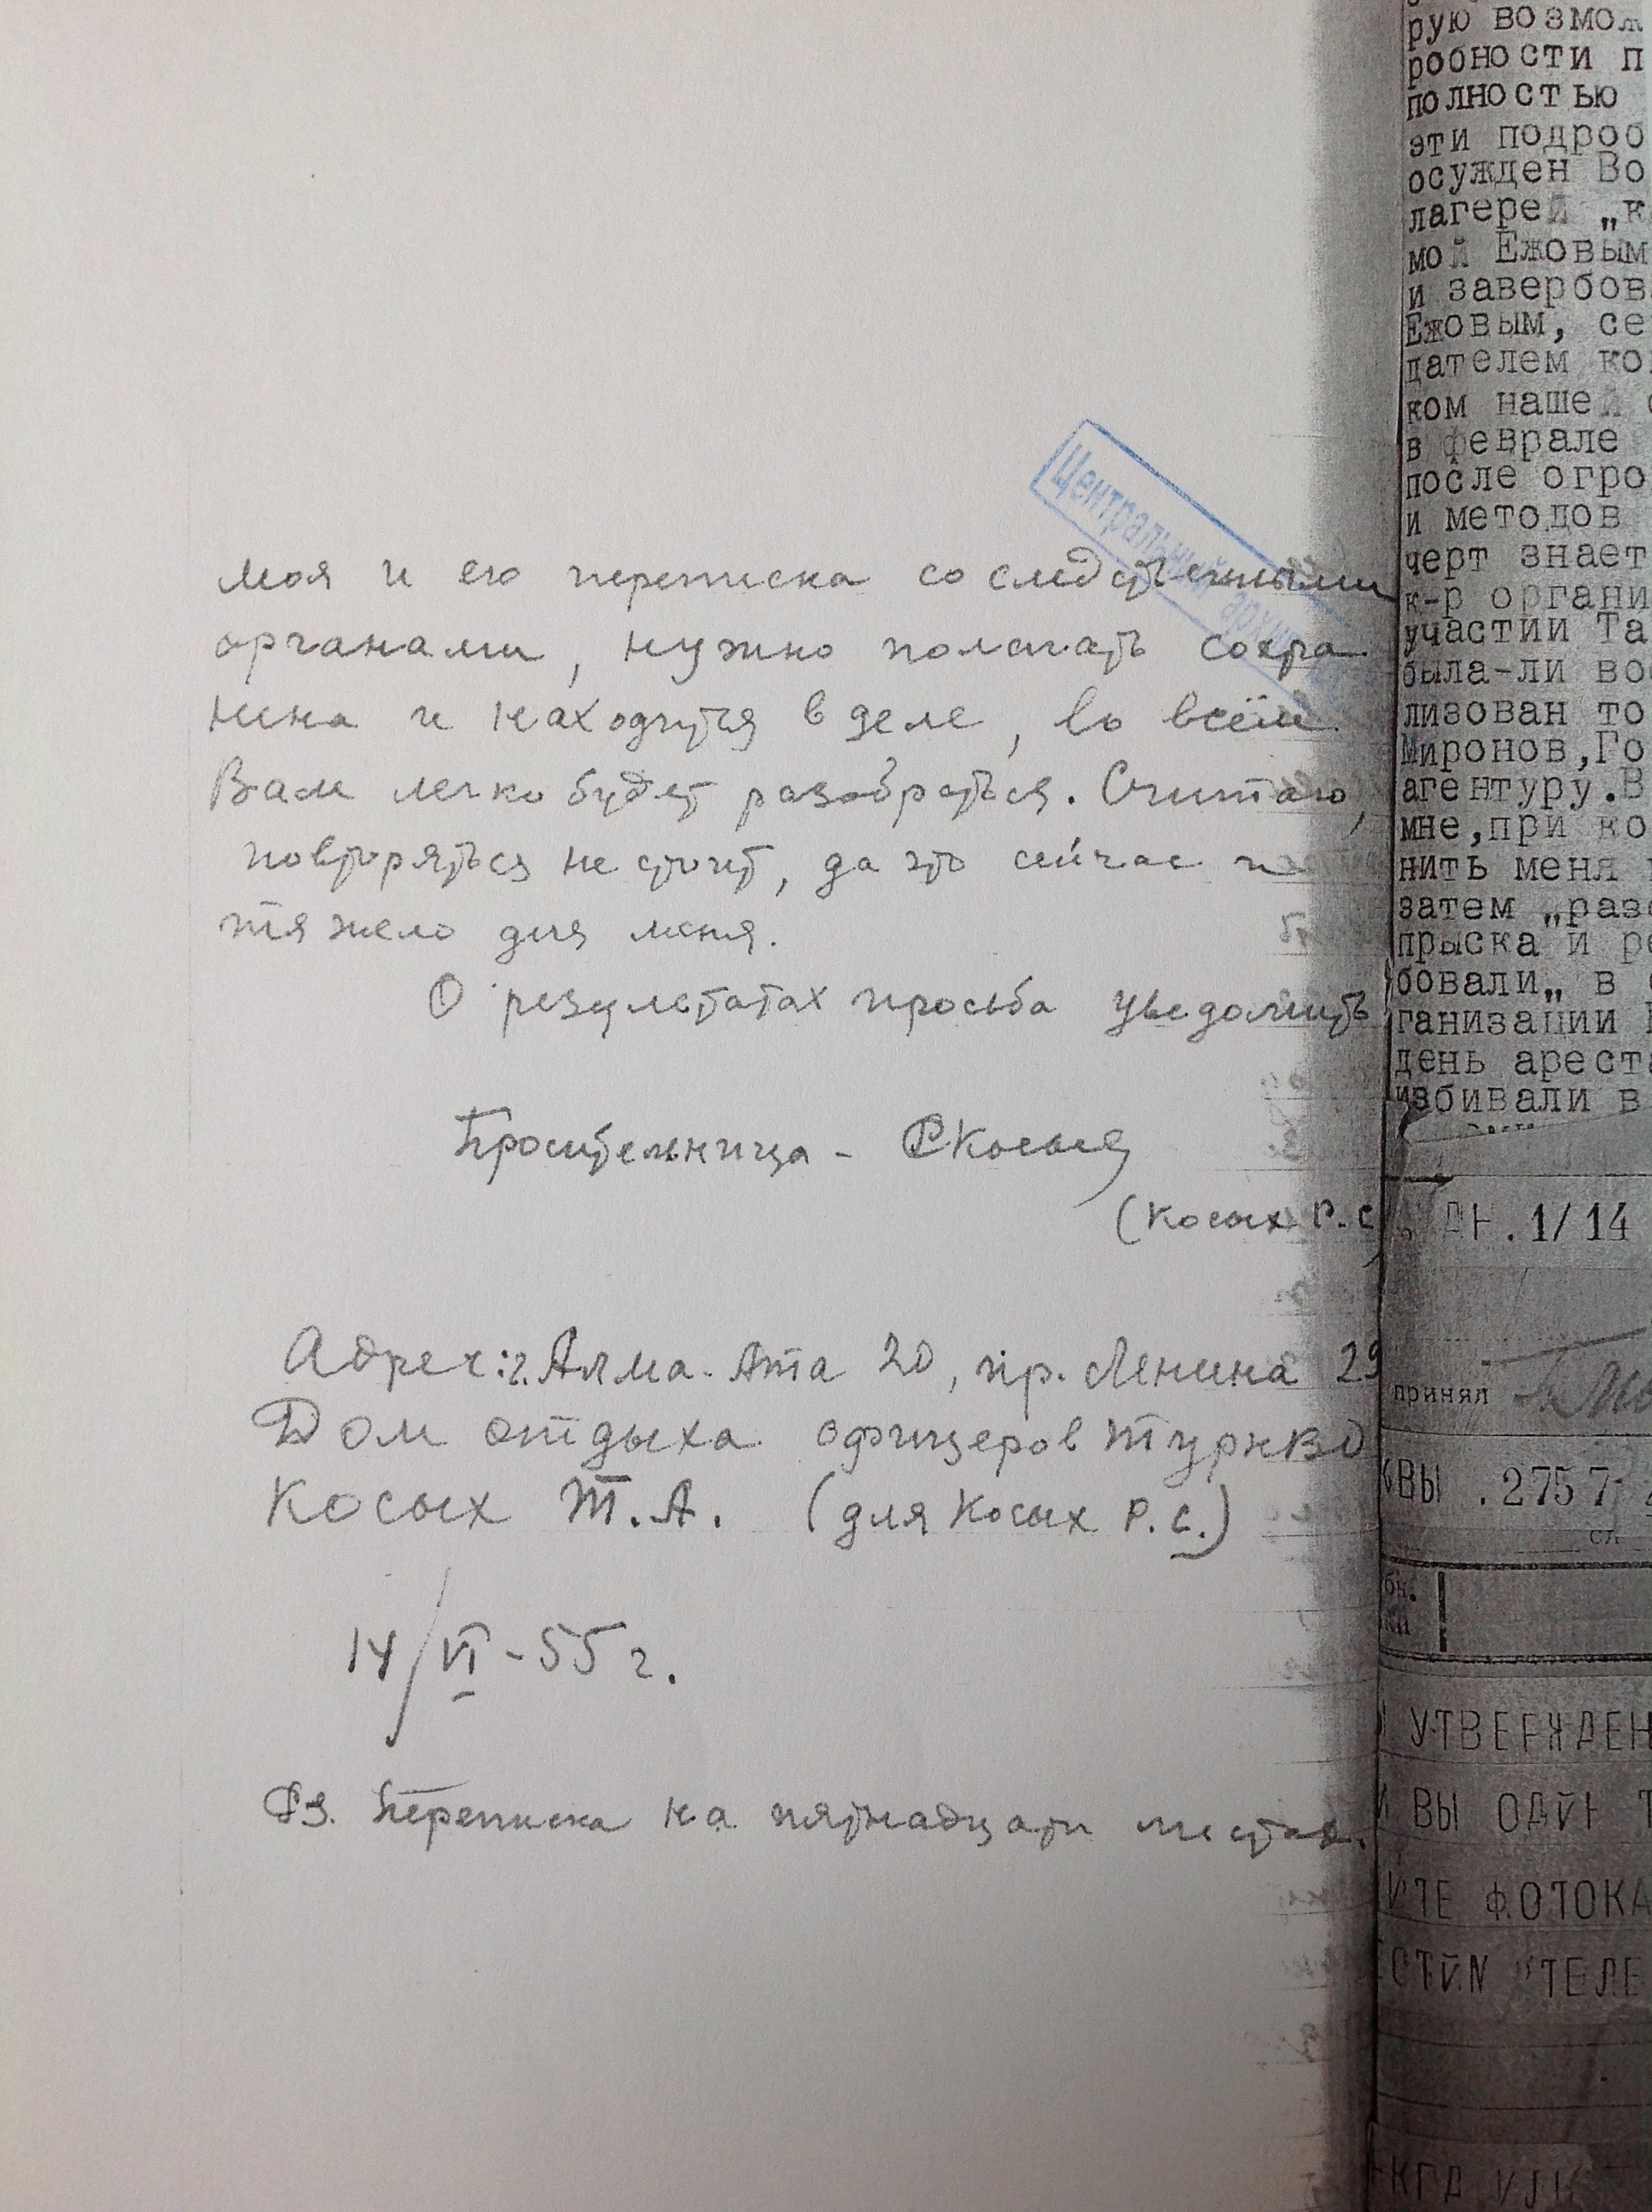 моя и его переписка со следственными
органами, нужно полагать сохра
нена и находится в деле, во всём
Вам легко будет разобраться. Считаю,
повторяться не стоит, да это сейчас и
тяжело для меня.
О результатах просьба уведомить
Просительница - РКосых
(Косых Р.С
Адрес: г. Алма-Ата 20, пр. Ленина 29
Дом отдыха офицеров ТуркВО
Косых Т.А. (для Косых Р.С.)
14/VI - 55 г.
Переписка на пятнадцати листах.
Центральный архив
рую возмож
робности п
полностью
эти подроб
осужден Во
лагерей „к
мой Ежовым
и завербов
Ежовым, се
дателем ко
ком нашей
в феврале
после огро
и методов
черт знает
к-р органи
участии Та
была-ли во
лизован то
Миронов,Го
агентуру.В
мне,при ко
нить меня
затем „раз
прыска и р
бовали„ в
ганизации
день арест
избивали в
.1/14
принял
КВЫ .2757
сл
УТВЕРЖДЕН
ВЫ ОДИН Т
ИТЕ ФОТОКА
ТЕЛЕ